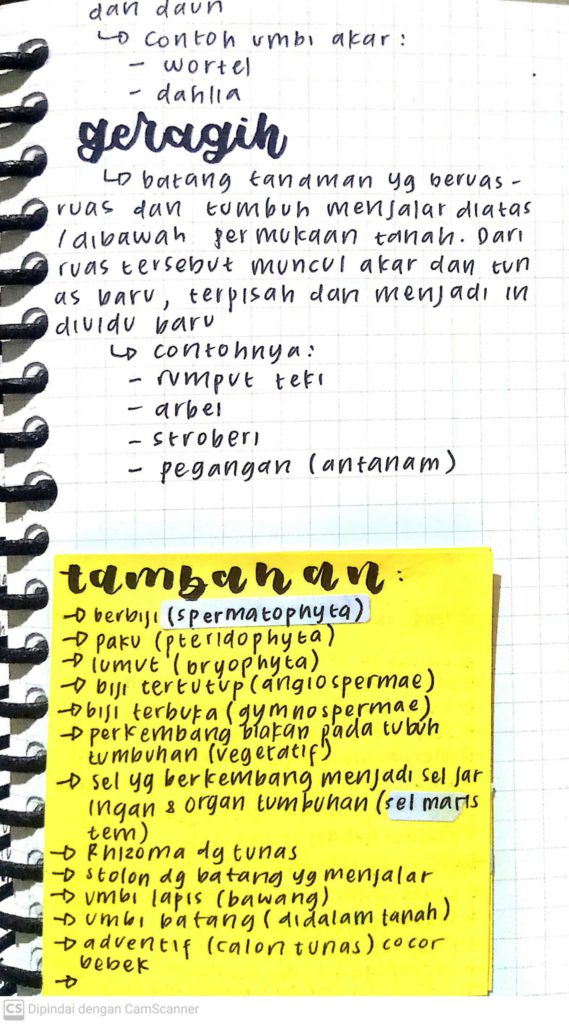 dan daun
↳ contoh umbi akar :
- wortel
- dahlia
geragih
↳ batang tanaman yg beruas-
ruas dan tumbuh menjalar diatas
/dibawah permukaan tanah. Dari
ruas tersebut muncul akar dan tun
as baru, terpisah dan menjadi in
dividu baru
↳ contohnya:
- rumput teki
- arbei
- stroberi
- pegangan (antanam)
tambahan :
→ berbiji (spermatophyta)
→ paku (pteridophyta)
→ lumut (bryophyta)
→ biji tertutup (angiospermae)
→ biji terbuka (gymnospermae)
→ perkembang biakan pada tubuh
tumbuhan (vegetatif)
→ sel yg berkembang menjadi sel jar
ingan & organ tumbuhan (sel maris
tem)
→ Rhizoma dg tunas
→ stolon dg batang yg menjalar
→ umbi lapis (bawang)
→ umbi batang (didalam tanah)
→ adventif (calon tunas) cocor
bebek
→
CS Dipindai dengan CamScanner